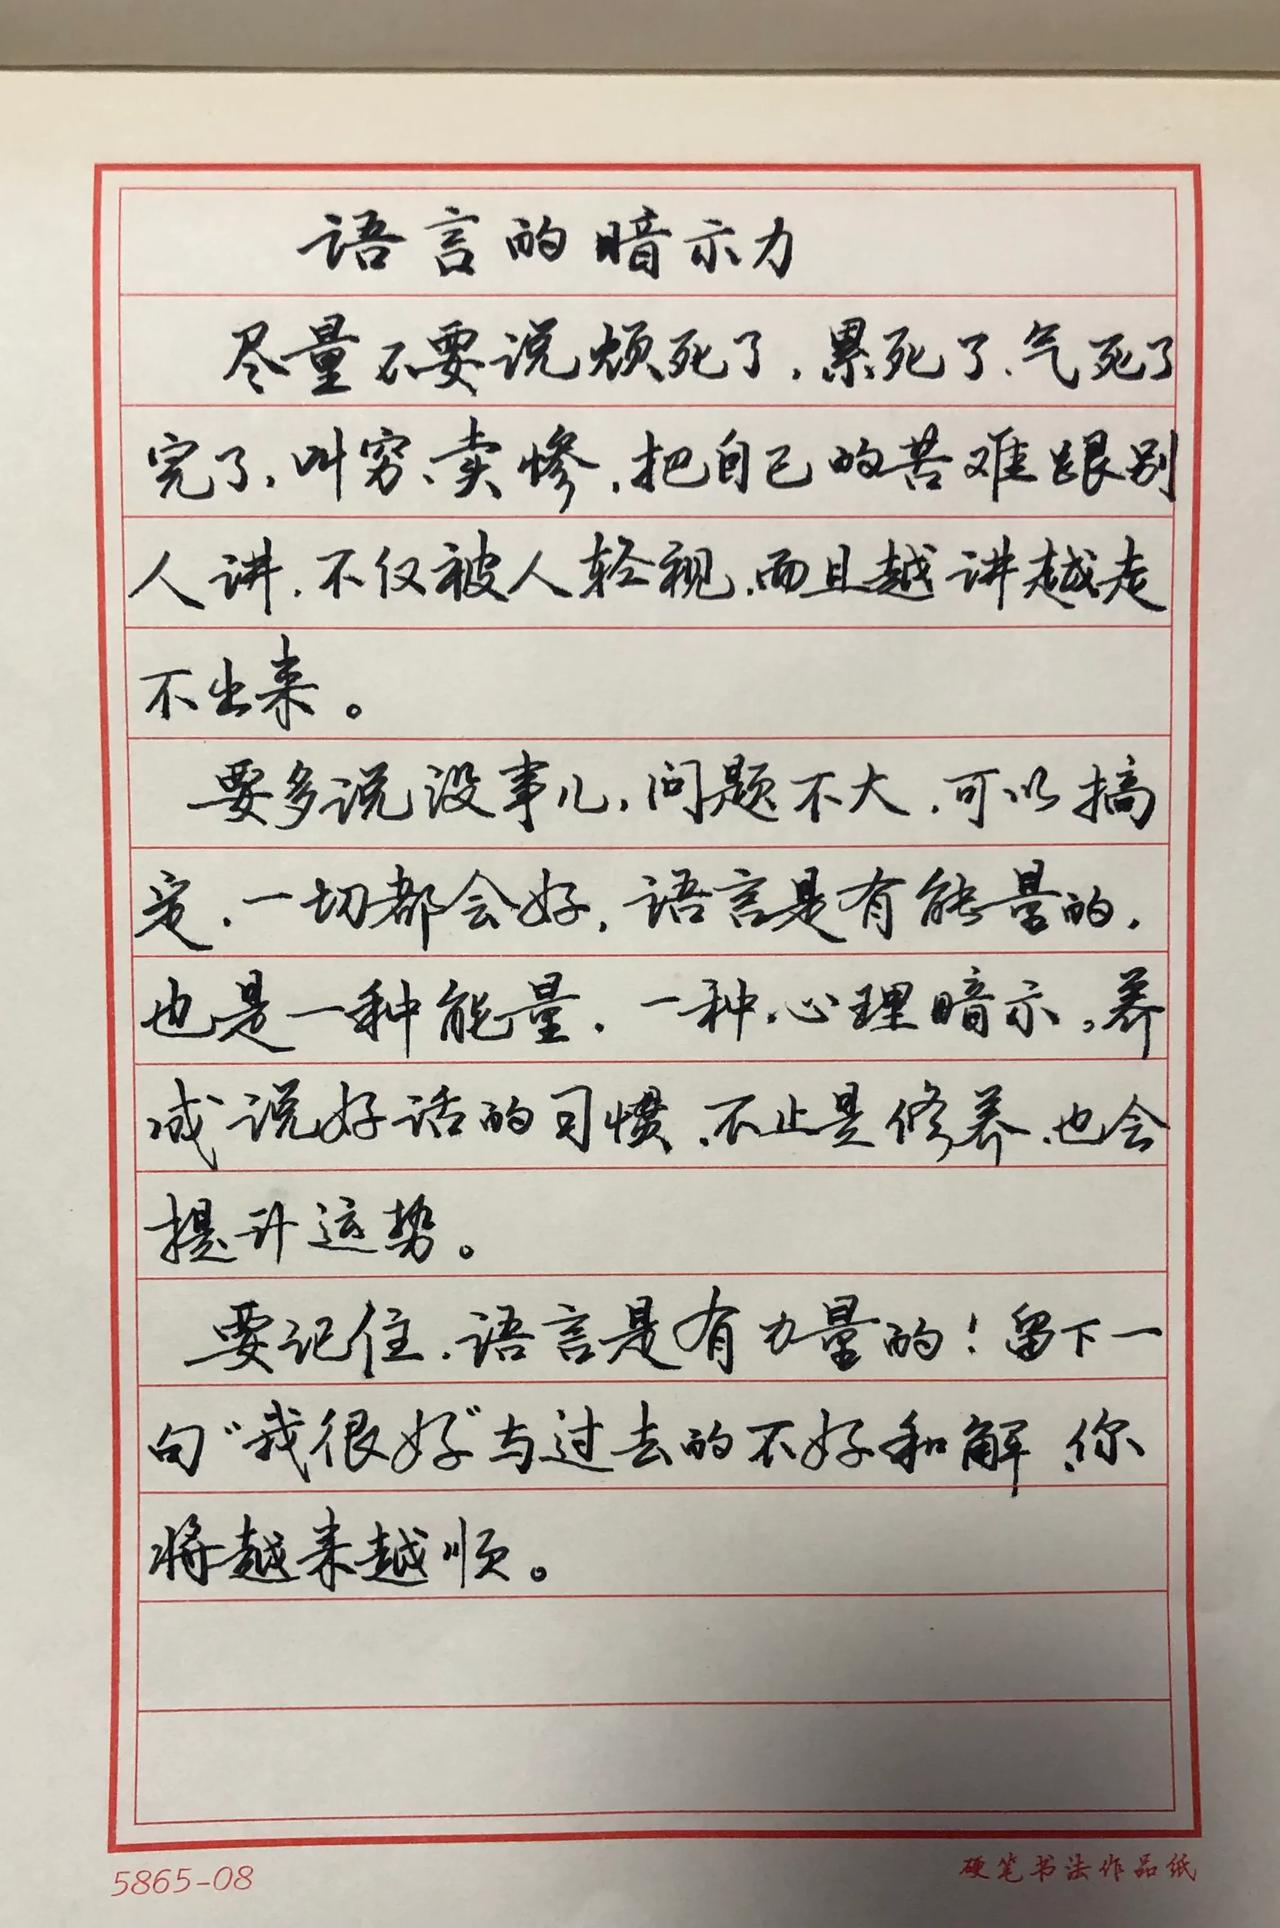 语言的暗示力
尽量不要说烦死了，累死了、气死了
完了，叫穷、卖惨，把自己的苦难跟别
人讲，不仅被人轻视，而且越讲越走
不出来。
要多说没事儿，问题不大，可以搞
定，一切都会好，语言是有能量的，
也是一种能量，一种心理暗示，养
成说好话的习惯，不止是修养、也会
提升运势。
要记住，语言是有力量的！留下一
句“我很好”与过去的不好和解、你
将越来越顺。
5865-08
硬笔书法作品纸